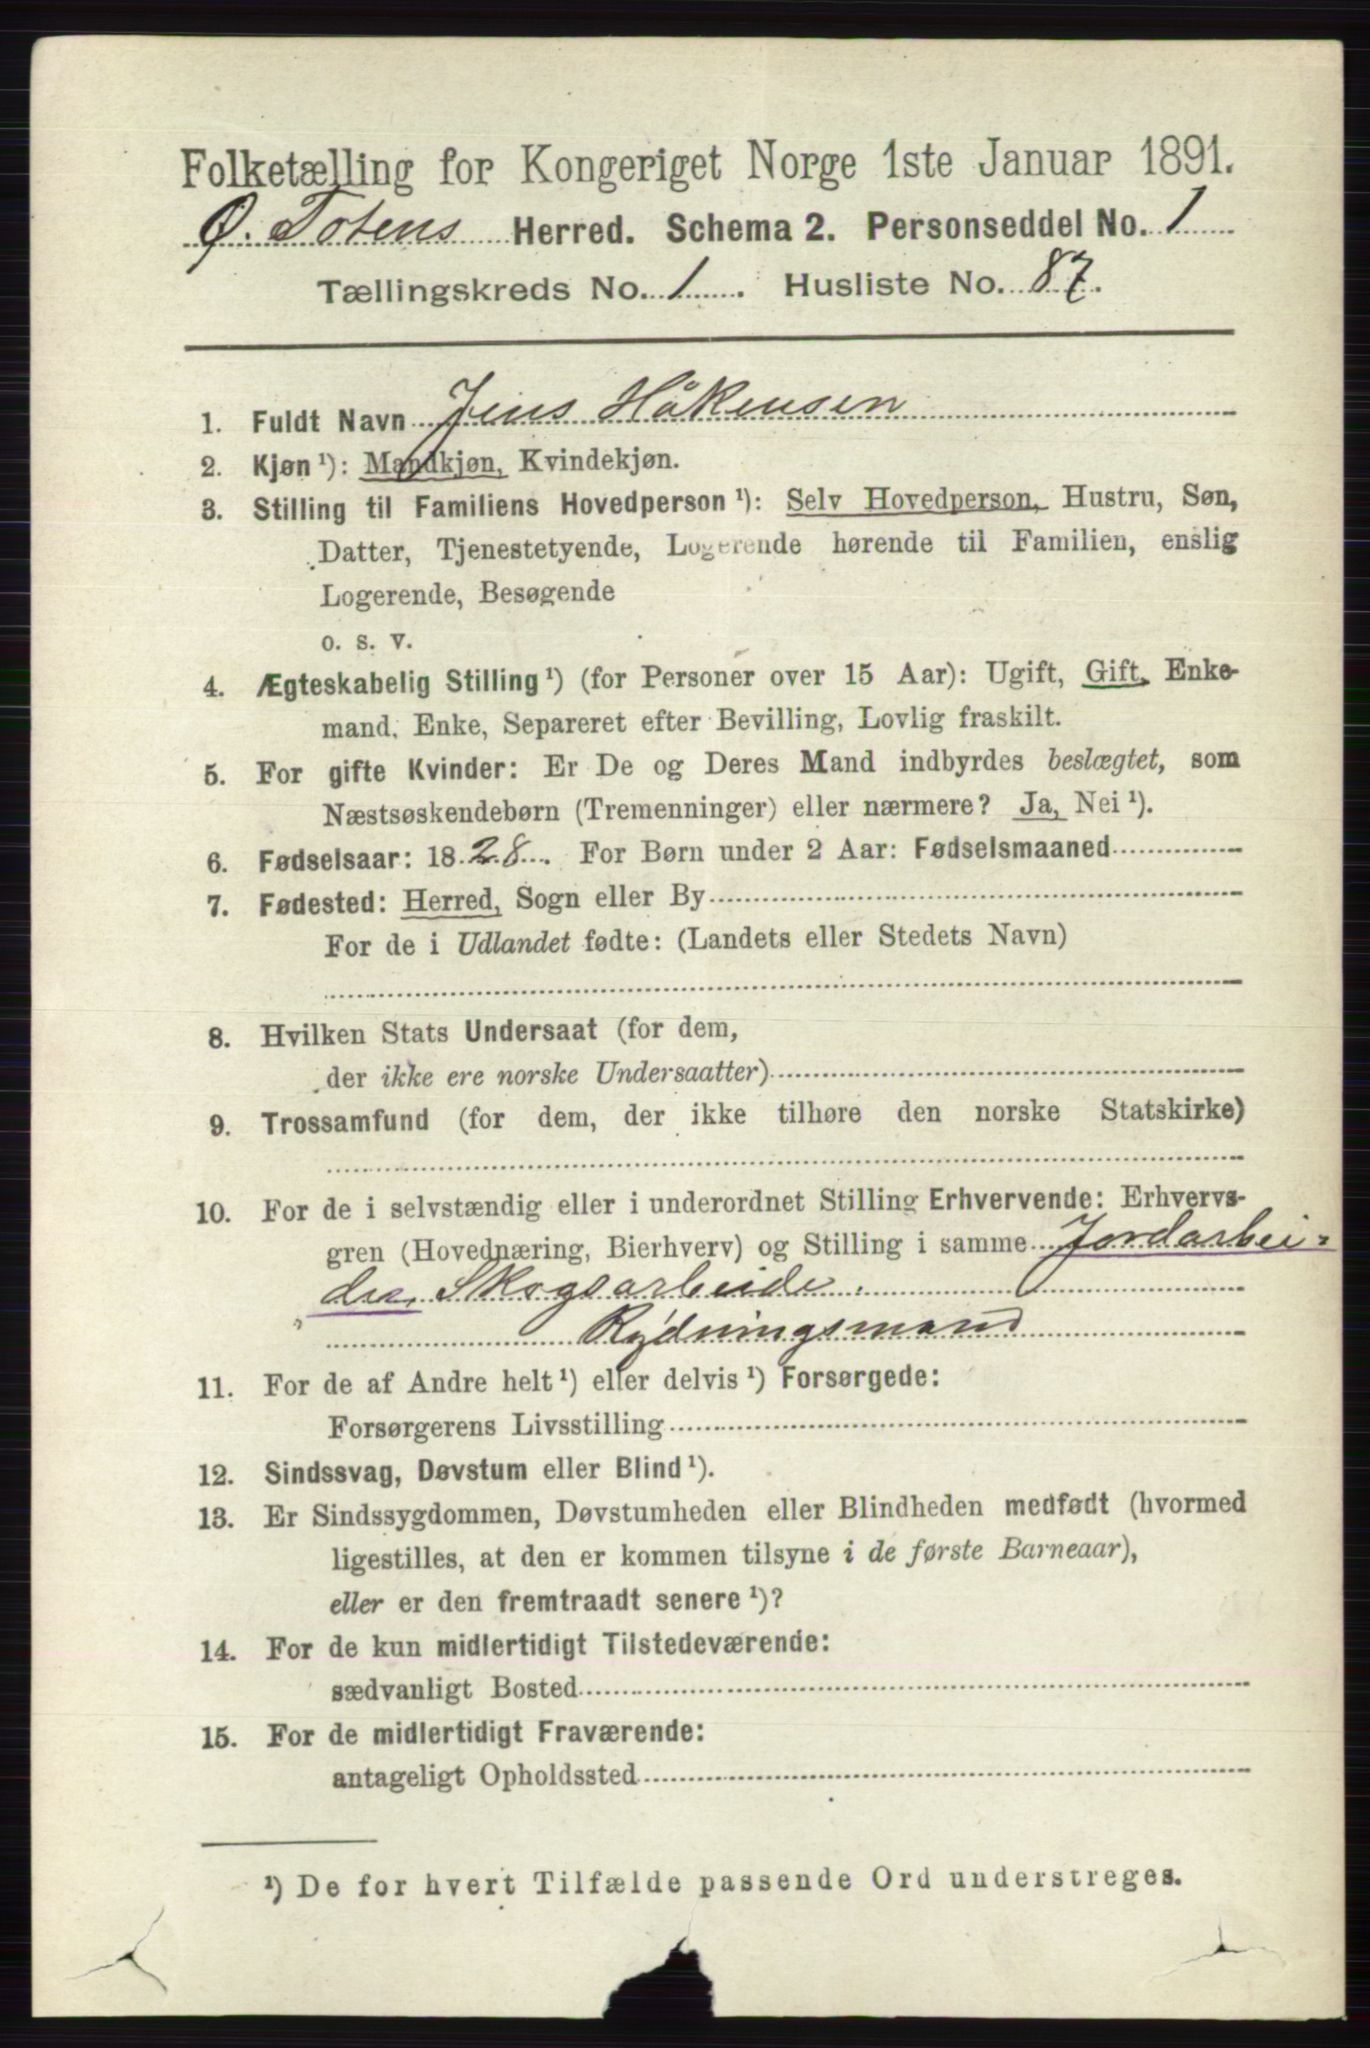 Folketælling for Kongeriget Norge 1ste Januar 1891.
Ø. Totens Herred. Schema 2. Personseddel No. 1
Tællingskreds No. 1 . Husliste No. 87.
1. Fuldt Navn Jens Håkensen
2. Kjøn ¹): Mandkjøn, Kvindekjøn.
3. Stilling til Familiens Hovedperson ¹): Selv Hovedperson, Hustru, Søn,
Datter, Tjenestetyende, Logerende hørende til Familien, enslig
Logerende, Besøgende
o. s. v.
4. Ægteskabelig Stilling ¹) (for Personer over 15 Aar): Ugift, Gift, Enke-
mand, Enke, Separeret efter Bevilling, Lovlig fraskilt.
5. For gifte Kvinder: Er De og Deres Mand indbyrdes beslægtet, som
Næstsøskendebørn (Tremenninger) eller nærmere? Ja, Nei ¹).
6. Fødselsaar: 1828. For Børn under 2 Aar: Fødselsmaaned
7. Fødested: Herred, Sogn eller By
For de i Udlandet fødte: (Landets eller Stedets Navn)
8. Hvilken Stats Undersaat (for dem,
der ikke ere norske Undersaatter)
9. Trossamfund (for dem, der ikke tilhøre den norske Statskirke)
10. For de i selvstændig eller i underordnet Stilling Erhvervende: Erhvervs-
gren (Hovednæring, Bierhverv) og Stilling i samme Jordarbei-
der, Skogsarbeide.
Rydningsmand
11. For de af Andre helt ¹) eller delvis ¹) Forsørgede:
Forsørgerens Livsstilling
12. Sindssvag, Døvstum eller Blind ¹).
13. Er Sindssygdommen, Døvstumheden eller Blindheden medfødt (hvormed
ligestilles, at den er kommen tilsyne i de første Barneaar),
eller er den fremtraadt senere ¹)?
14. For de kun midlertidigt Tilstedeværende:
sædvanligt Bosted
15. For de midlertidigt Fraværende:
antageligt Opholdssted
¹) De for hvert Tilfælde passende Ord understreges.